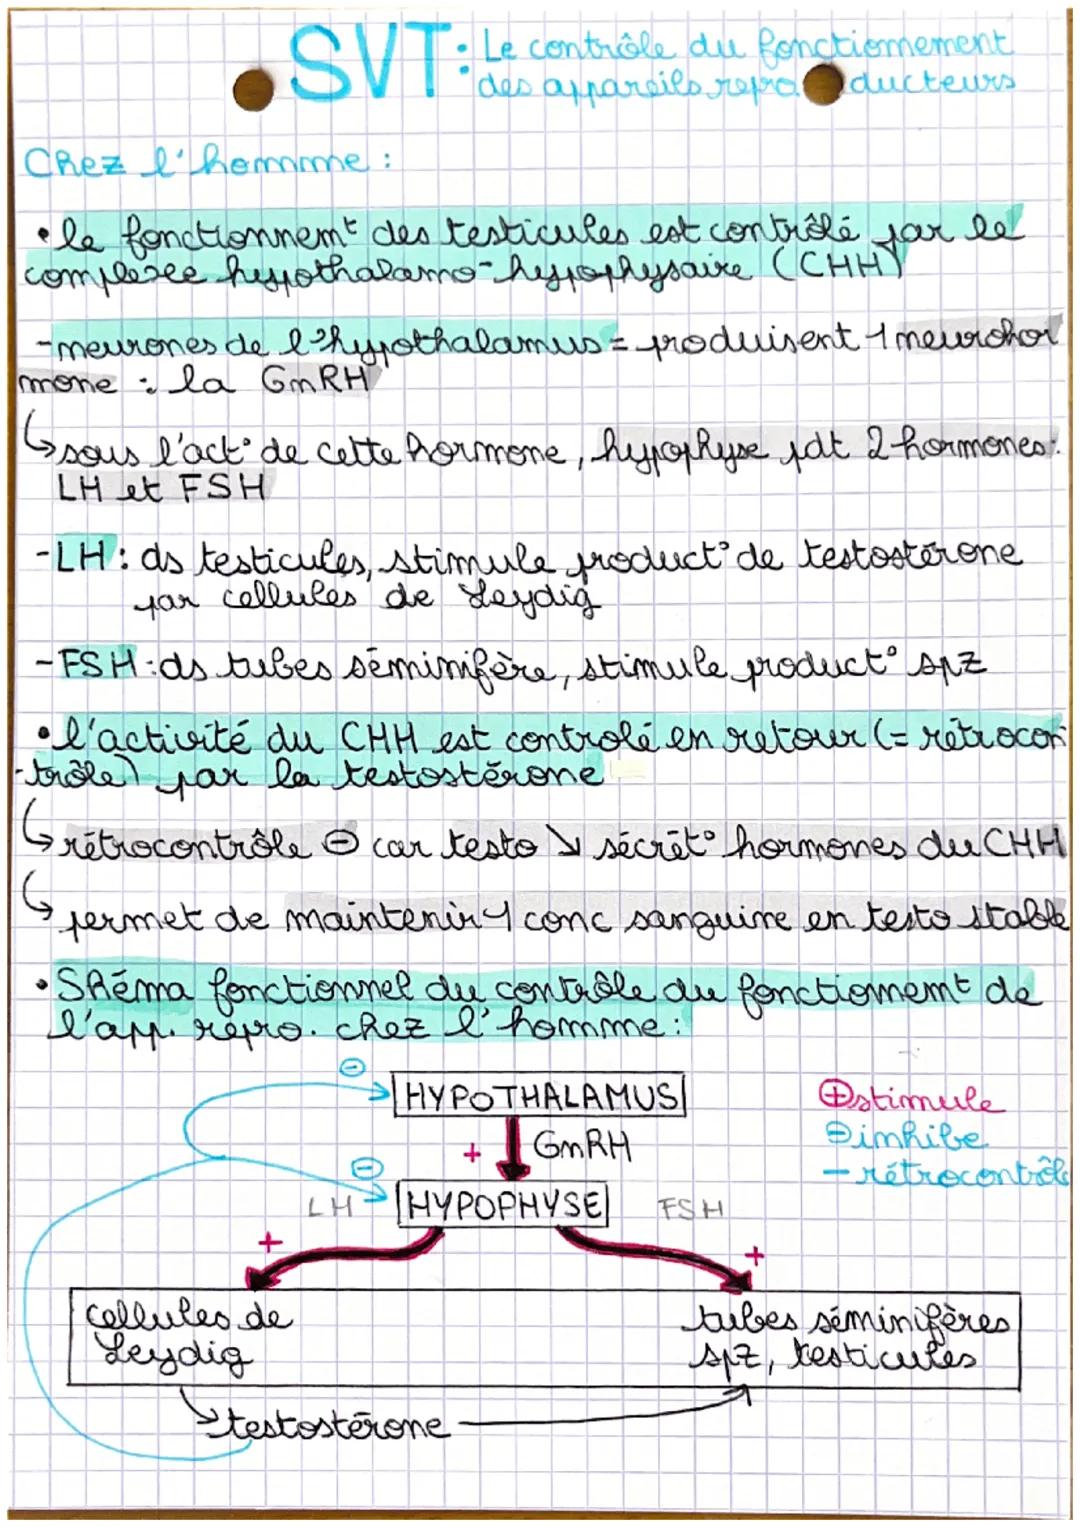 SVT: Le contrôle du fonctionnement
des appareils reproducteurs
Chez l'homme :
• le fonctionnemt des testicules est contrôlé par le
complexe hypothalamo-hypophysaire (CHH)
- neurones de l'hypothalamus = produisent 1 neurohor
mone : la GnRH
↳ sous l'act° de cette hormone, hypophyse pdt 2 hormones:
LH et FSH
- LH : ds testicules, stimule product° de testostérone
par cellules de Leydig
- FSH : ds tubes séminifère, stimule product° spz
• l'activité du CHH est controlé en retour (= rétrocon
-trôle) par la testostérone
↳ rétrocontrôle ⊖ car testo ↘ sécrét° hormones du CHH
↳ permet de maintenir 1 conc sanguine en testo stable
• Shéma fonctionnel du contrôle du fonctionnemt de
l'app. repro. chez l'homme :
⊖
HYPOTHALAMUS
⊕ stimule
+ GnRH
⊖ inhibe
— rétrocontrôle
⊖
LH HYPOPHYSE FSH
+ +
cellules de tubes séminifères
Leydig spz, testicules
testostérone